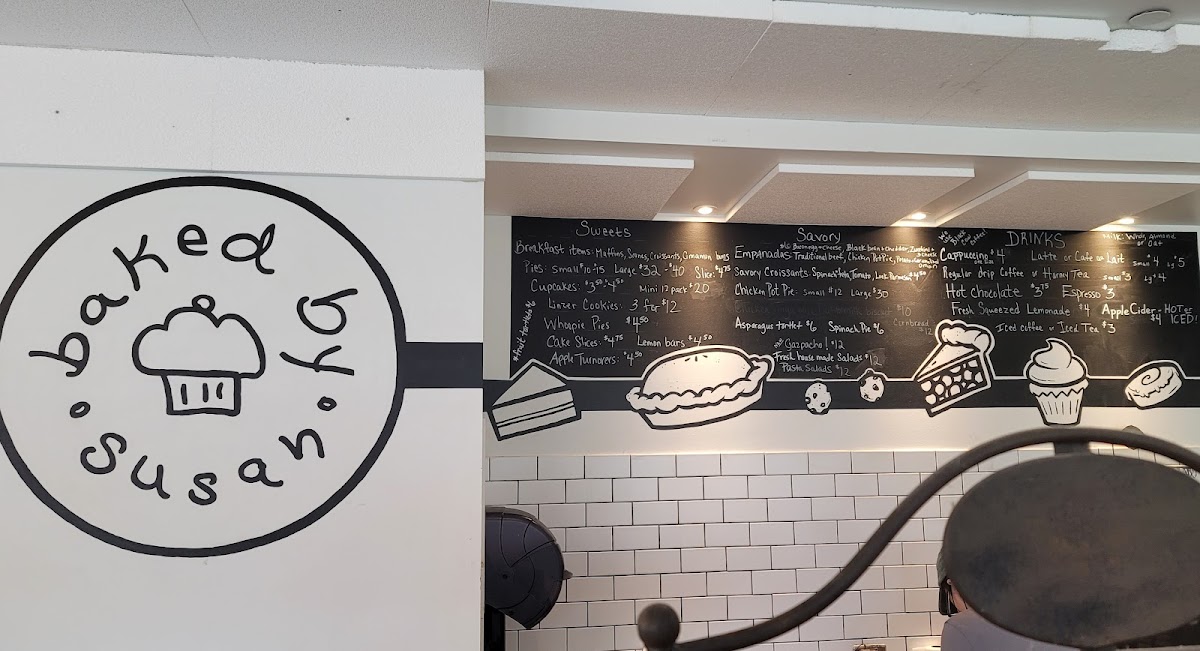 baked by susan
Sweets
Breakfast items: Muffins, Scones, Croissants, Cinnamon buns
Pies: small $10-15 Large $32-$40 Slice: $4.75
Cupcakes: $3.50-4.50 Mini 12 pack $20
Linzer Cookies: 3 for $12
Whoopie Pies $4.50
Cake Slices: $4.75 Lemon bars $4.50
Apple Turnovers: $4.50
Savory
Empanadas
Traditional beef, Chicken Pot Pie,
Savory Croissants: Spinach
Chicken Pot Pie: small $12 Large $30
Asparagus tartlet $6 Spinach Pie $6 Cornbread $12
Gazpacho! $12
Fresh house made Salads $12
Pasta Salads $12
DRINKS
Milk: Whole, Almond or Oat
Cappuccino $4 Latte or Cafe au Lait small $4 Lg $5
Regular drip Coffee or Harney Tea small $3 Lg $4
Hot chocolate $3.75 Espresso $3
Fresh Squeezed Lemonade $4 Apple Cider - HOT or ICED! $4
Iced coffee or Iced Tea $3